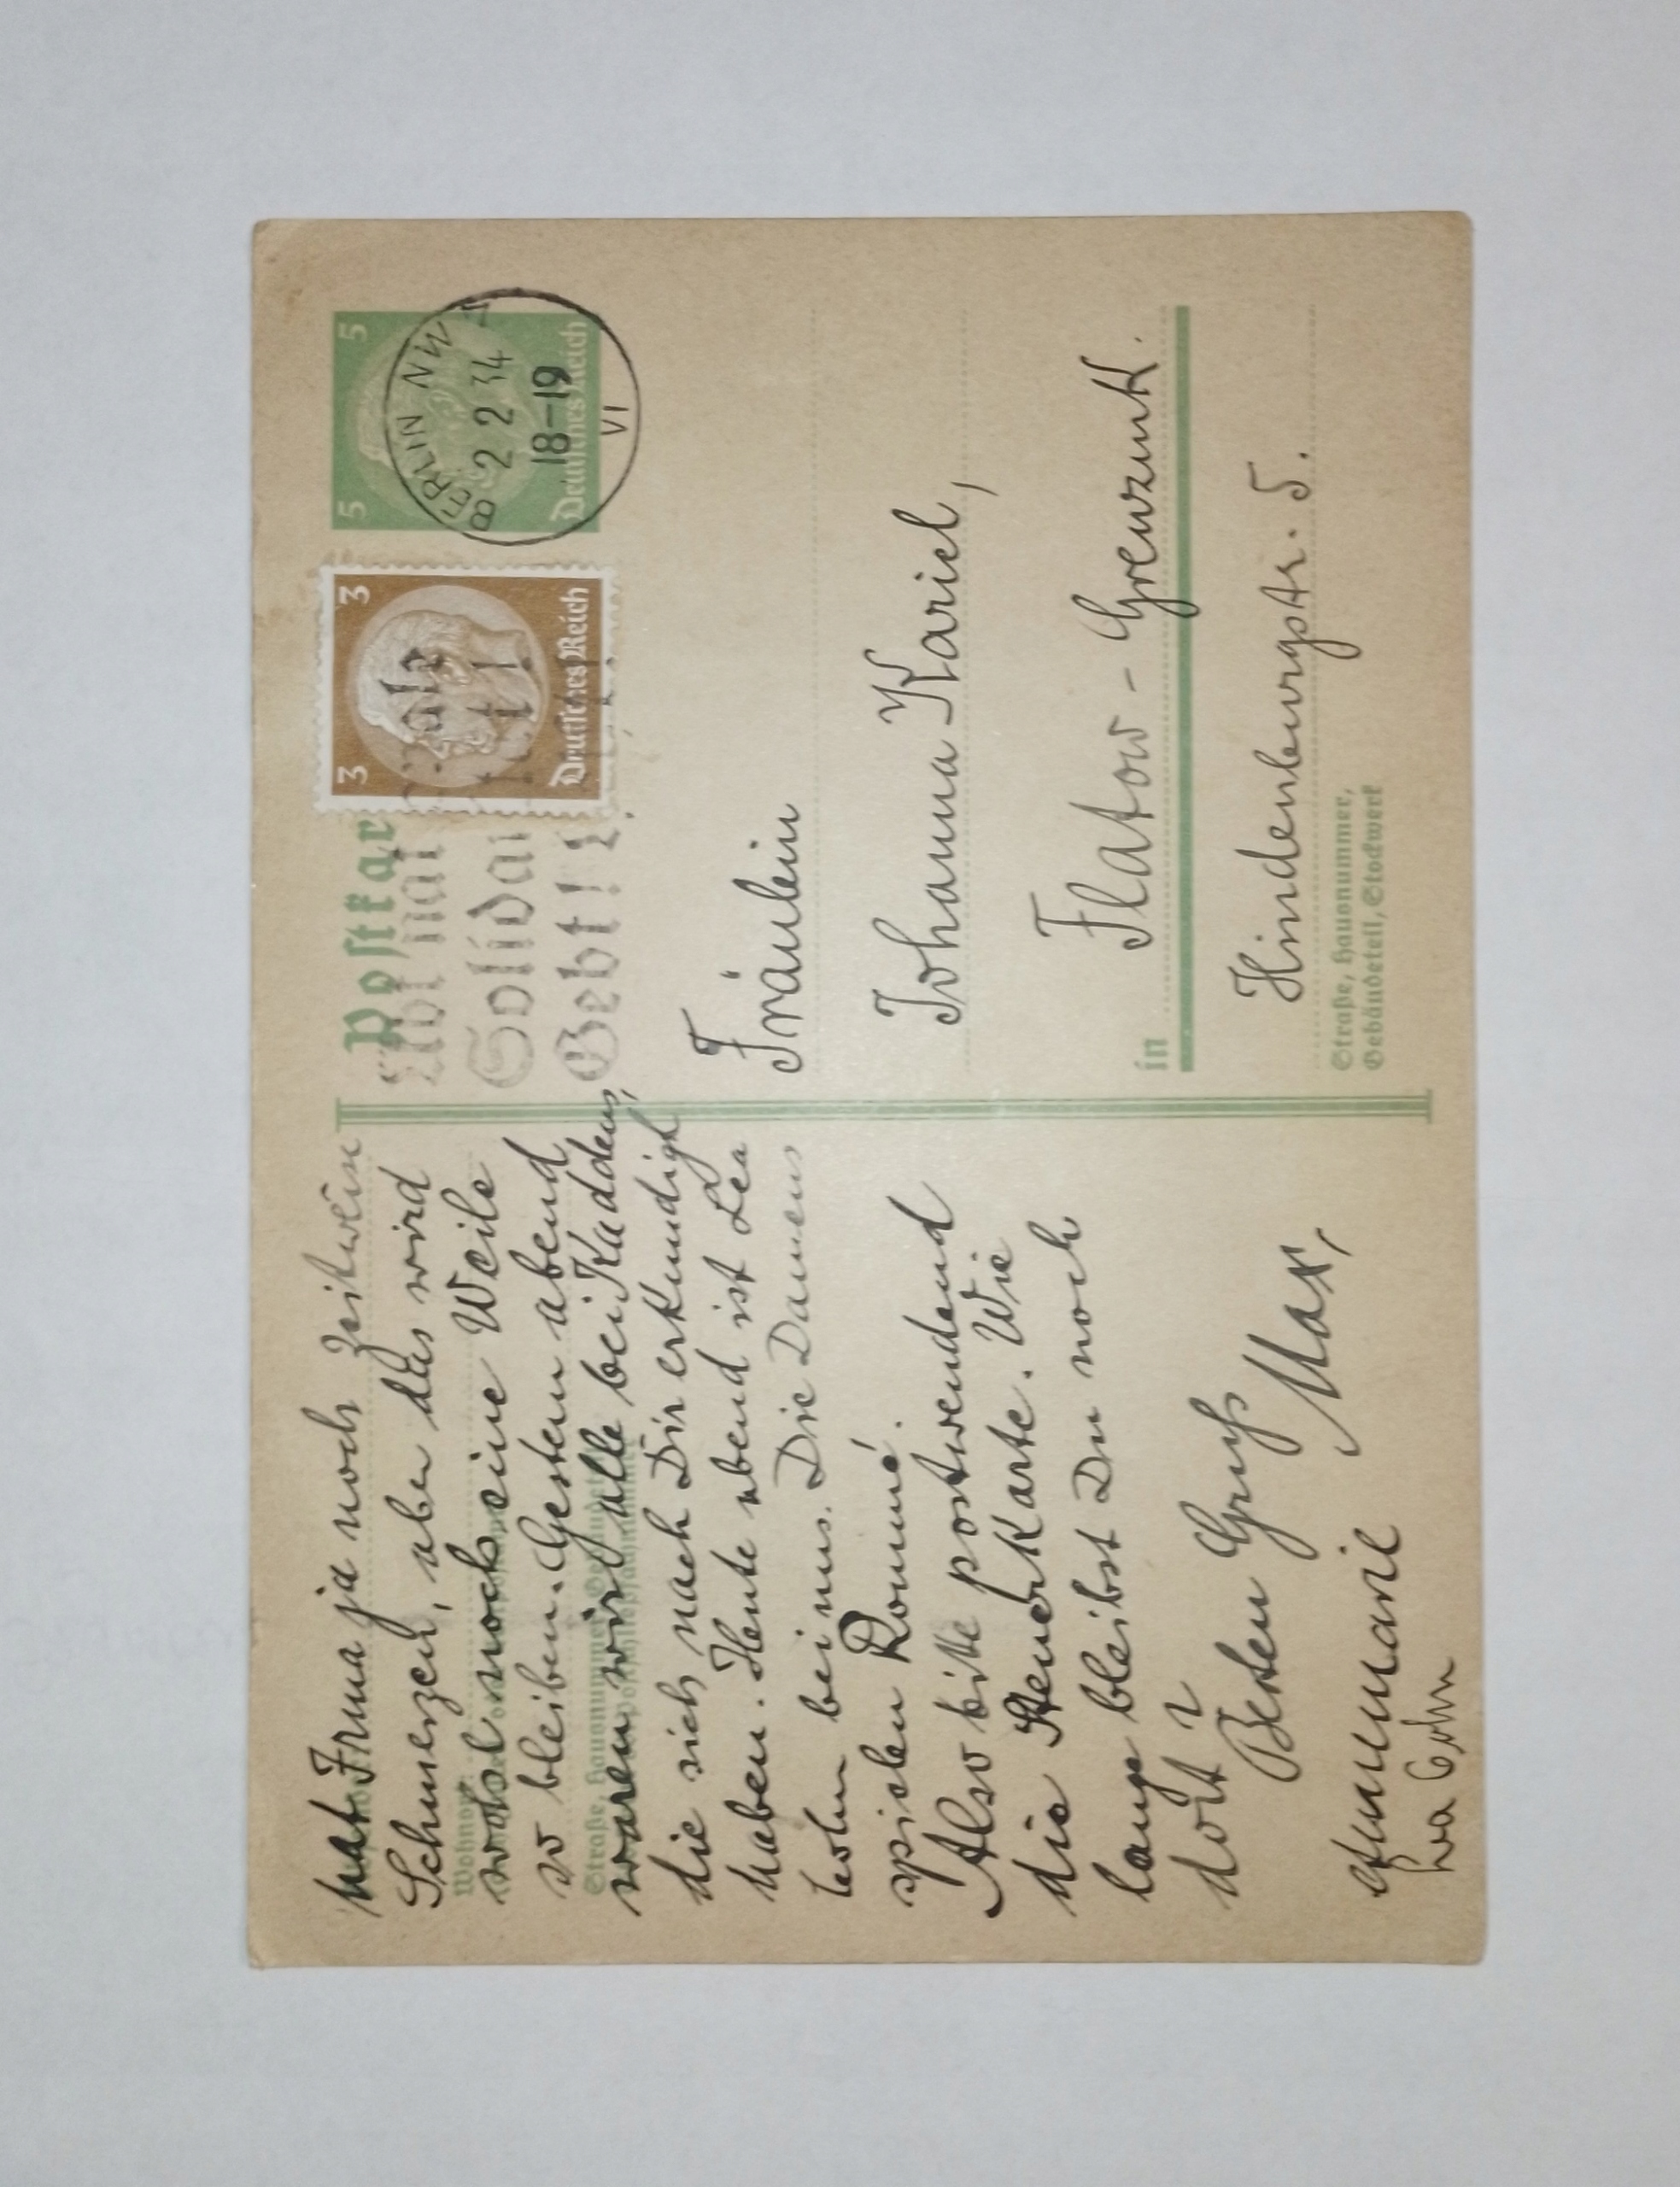 hat Irma ja noch zeitwein
Schmerzen, aber das wird
wohl noch eine Weile
so bleiben. Gestern abend
waren wir alle bei Kaddens,
die sich nach Dir erkundigt
haben. Heute abend ist Lea
Cohn bei uns. Die Damens
spielen Rommé.
Also bitte postwendend
die Steuerkarte. Wie
lange bleibst Du noch
dort?
Besten Gruß
Max,
Annemarie
Lea Cohn
Wohnort
Straße, Hausnummer, Gebäudeteil,
Postkar
Solidar
Gebt!
3 3
Deutsches Reich
5 5
Deutsches Reich
BERLIN NW
2 2 34
18-19
VI
Fräulein
Johanna Kariel,
in Flatow - Grenzmk.
Hindenburgstr. 5.
Straße, Hausnummer,
Gebäudeteil, Stockwerk